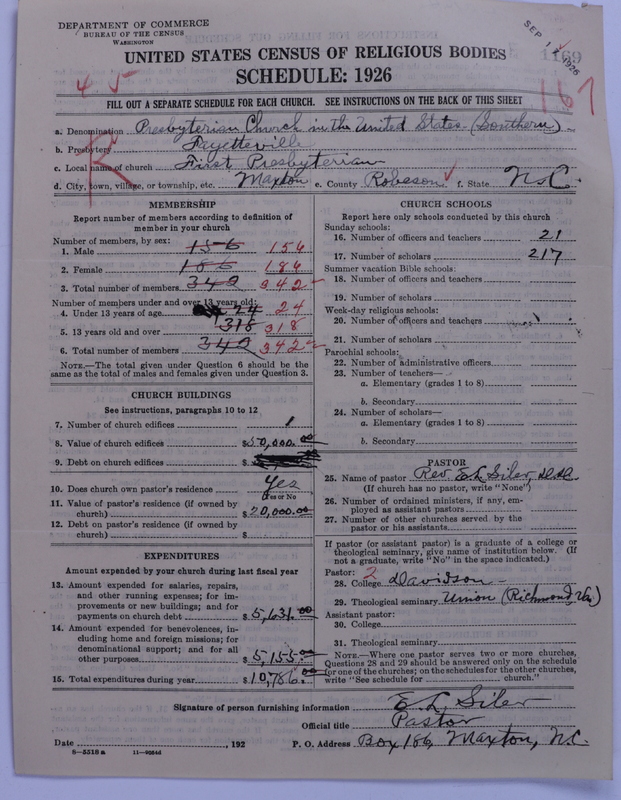 DEPARTMENT OF COMMERCE
BUREAU OF THE CENSUS
WASHINGTON
SEP 1 1926
1169
UNITED STATES CENSUS OF RELIGIOUS BODIES
SCHEDULE: 1926
4 5
167
FILL OUT A SEPARATE SCHEDULE FOR EACH CHURCH. SEE INSTRUCTIONS ON THE BACK OF THIS SHEET
a. Denomination Presbyterian Church in the United States (Southern)
b. Presbytery Fayetteville
c. Local name of church First Presbyterian
d. City, town, village, or township, etc. Maxton e. County Robeson f. State N.C.
MEMBERSHIP
Report number of members according to definition of member in your church
Number of members, by sex:
1. Male 156 156
2. Female 186 186
3. Total number of members 342 342
Number of members under and over 13 years old:
4. Under 13 years of age 24 24
5. 13 years old and over 318 318
6. Total number of members 342 342
NOTE.—The total given under Question 6 should be the same as the total of males and females given under Question 3.
CHURCH BUILDINGS
See instructions, paragraphs 10 to 12
7. Number of church edifices 1
8. Value of church edifices $50,000.00
9. Debt on church edifices $
10. Does church own pastor's residence Yes
(Yes or No)
11. Value of pastor's residence (if owned by church) $20,000.00
12. Debt on pastor's residence (if owned by church) $
EXPENDITURES
Amount expended by your church during last fiscal year
13. Amount expended for salaries, repairs, and other running expenses; for improvements or new buildings; and for payments on church debt $5,631.00
14. Amount expended for benevolences, including home and foreign missions; for denominational support; and for all other purposes $5,155.00
15. Total expenditures during year $10,786.00
CHURCH SCHOOLS
Report here only schools conducted by this church
Sunday schools:
16. Number of officers and teachers 21
17. Number of scholars 217
Summer vacation Bible schools:
18. Number of officers and teachers
19. Number of scholars
Week-day religious schools:
20. Number of officers and teachers
21. Number of scholars
Parochial schools:
22. Number of administrative officers
23. Number of teachers—
a. Elementary (grades 1 to 8)
b. Secondary
24. Number of scholars—
a. Elementary (grades 1 to 8)
b. Secondary
PASTOR
25. Name of pastor Rev. E L Siler, D.D.
(If church has no pastor, write "None")
26. Number of ordained ministers, if any, employed as assistant pastors
27. Number of other churches served by the pastor or his assistants
If pastor (or assistant pastor) is a graduate of a college or theological seminary, give name of institution below. (If not a graduate, write "No" in the space indicated.)
Pastor: 2
28. College Davidson
29. Theological seminary Union (Richmond, Va)
Assistant pastor:
30. College
31. Theological seminary
NOTE.—Where one pastor serves two or more churches, Questions 28 and 29 should be answered only on the schedule for one of the churches; on the schedules for the other churches, write "See schedule for church."
Signature of person furnishing information E L Siler
Official title Pastor
Date , 192 P. O. Address Box 186, Maxton, N.C.
8—5518 a 11—9054d